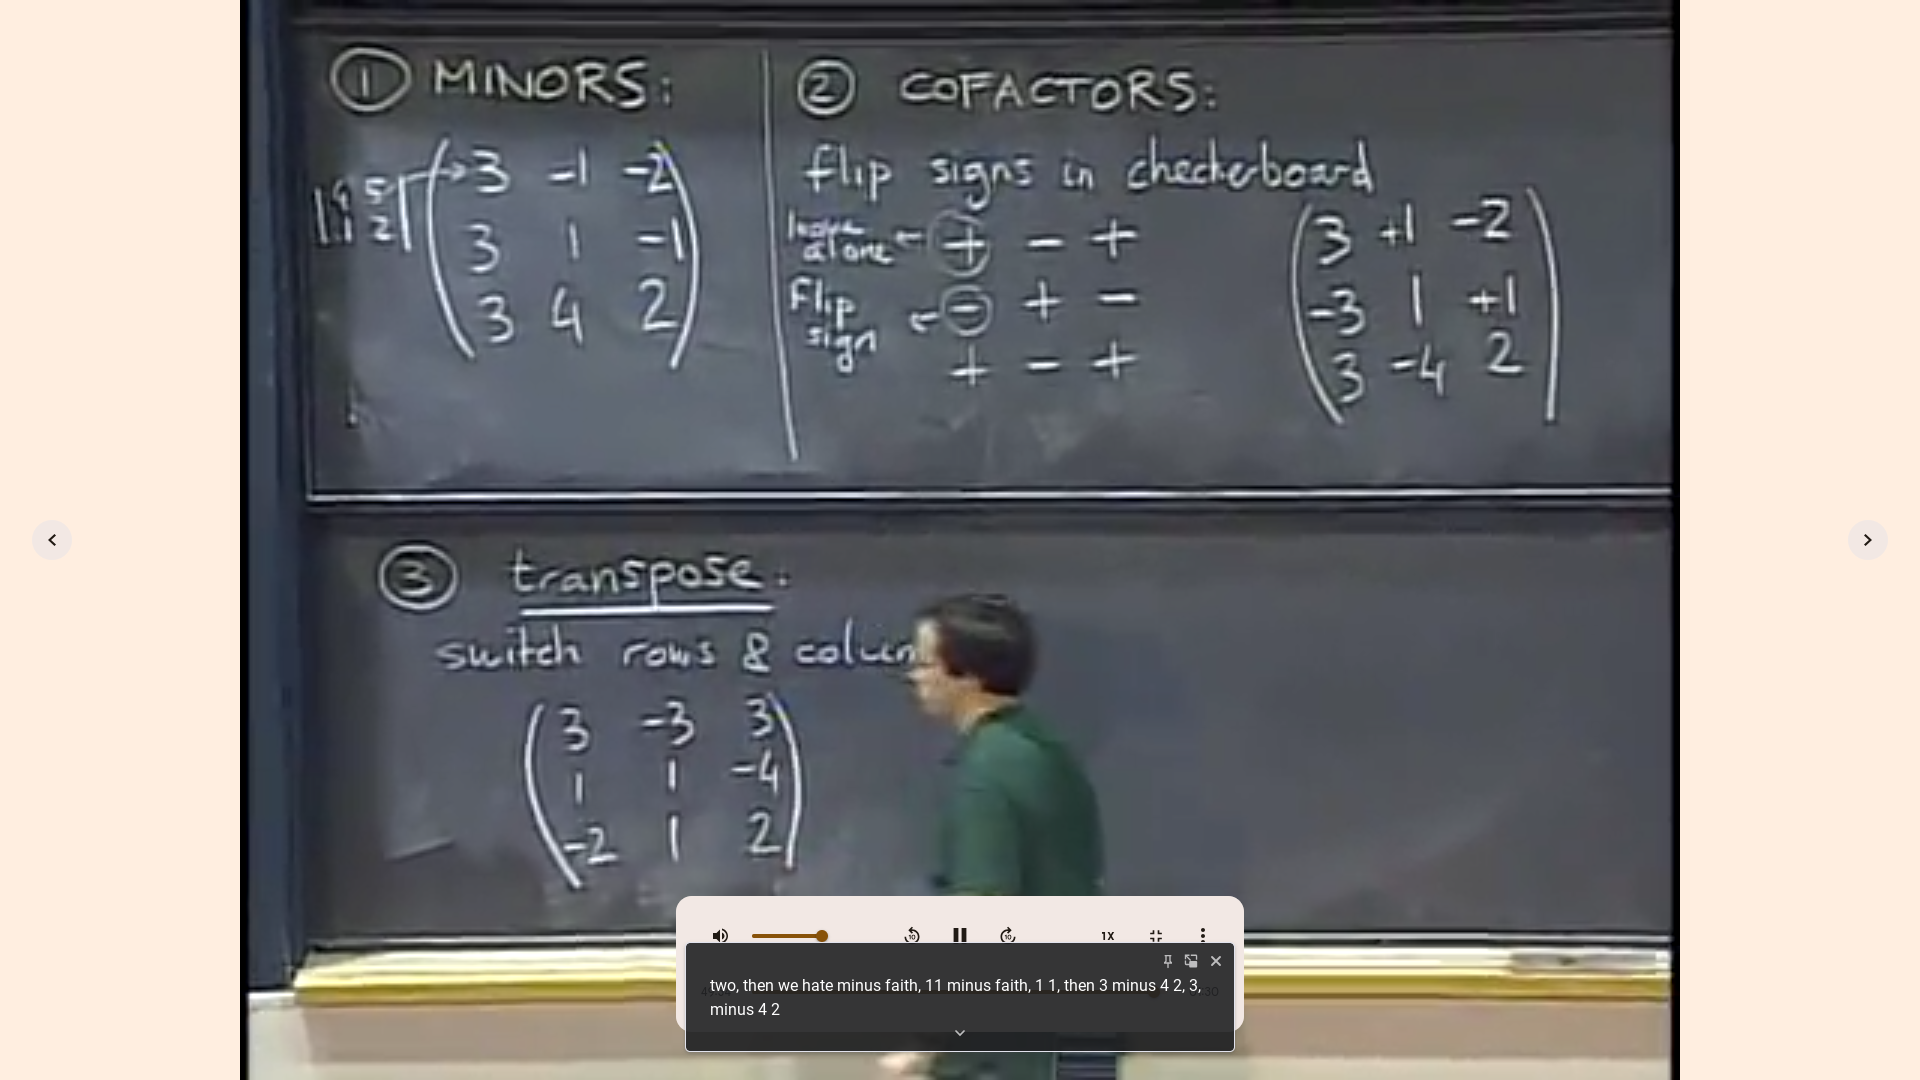 ① MINORS:
3 -1 -2
3 1 -1
3 4 2
② COFACTORS:
flip signs in checkerboard
leave alone ← + - +
flip sign ← - + -
+ - +
3 +1 -2
-3 1 +1
3 -4 2
③ transpose:
switch rows &
3 -3 3
1 1 -4
-2 1 2
1X
two, then we hate minus faith, 11 minus faith, 1 1, then 3 minus 4 2, 3,
minus 4 2